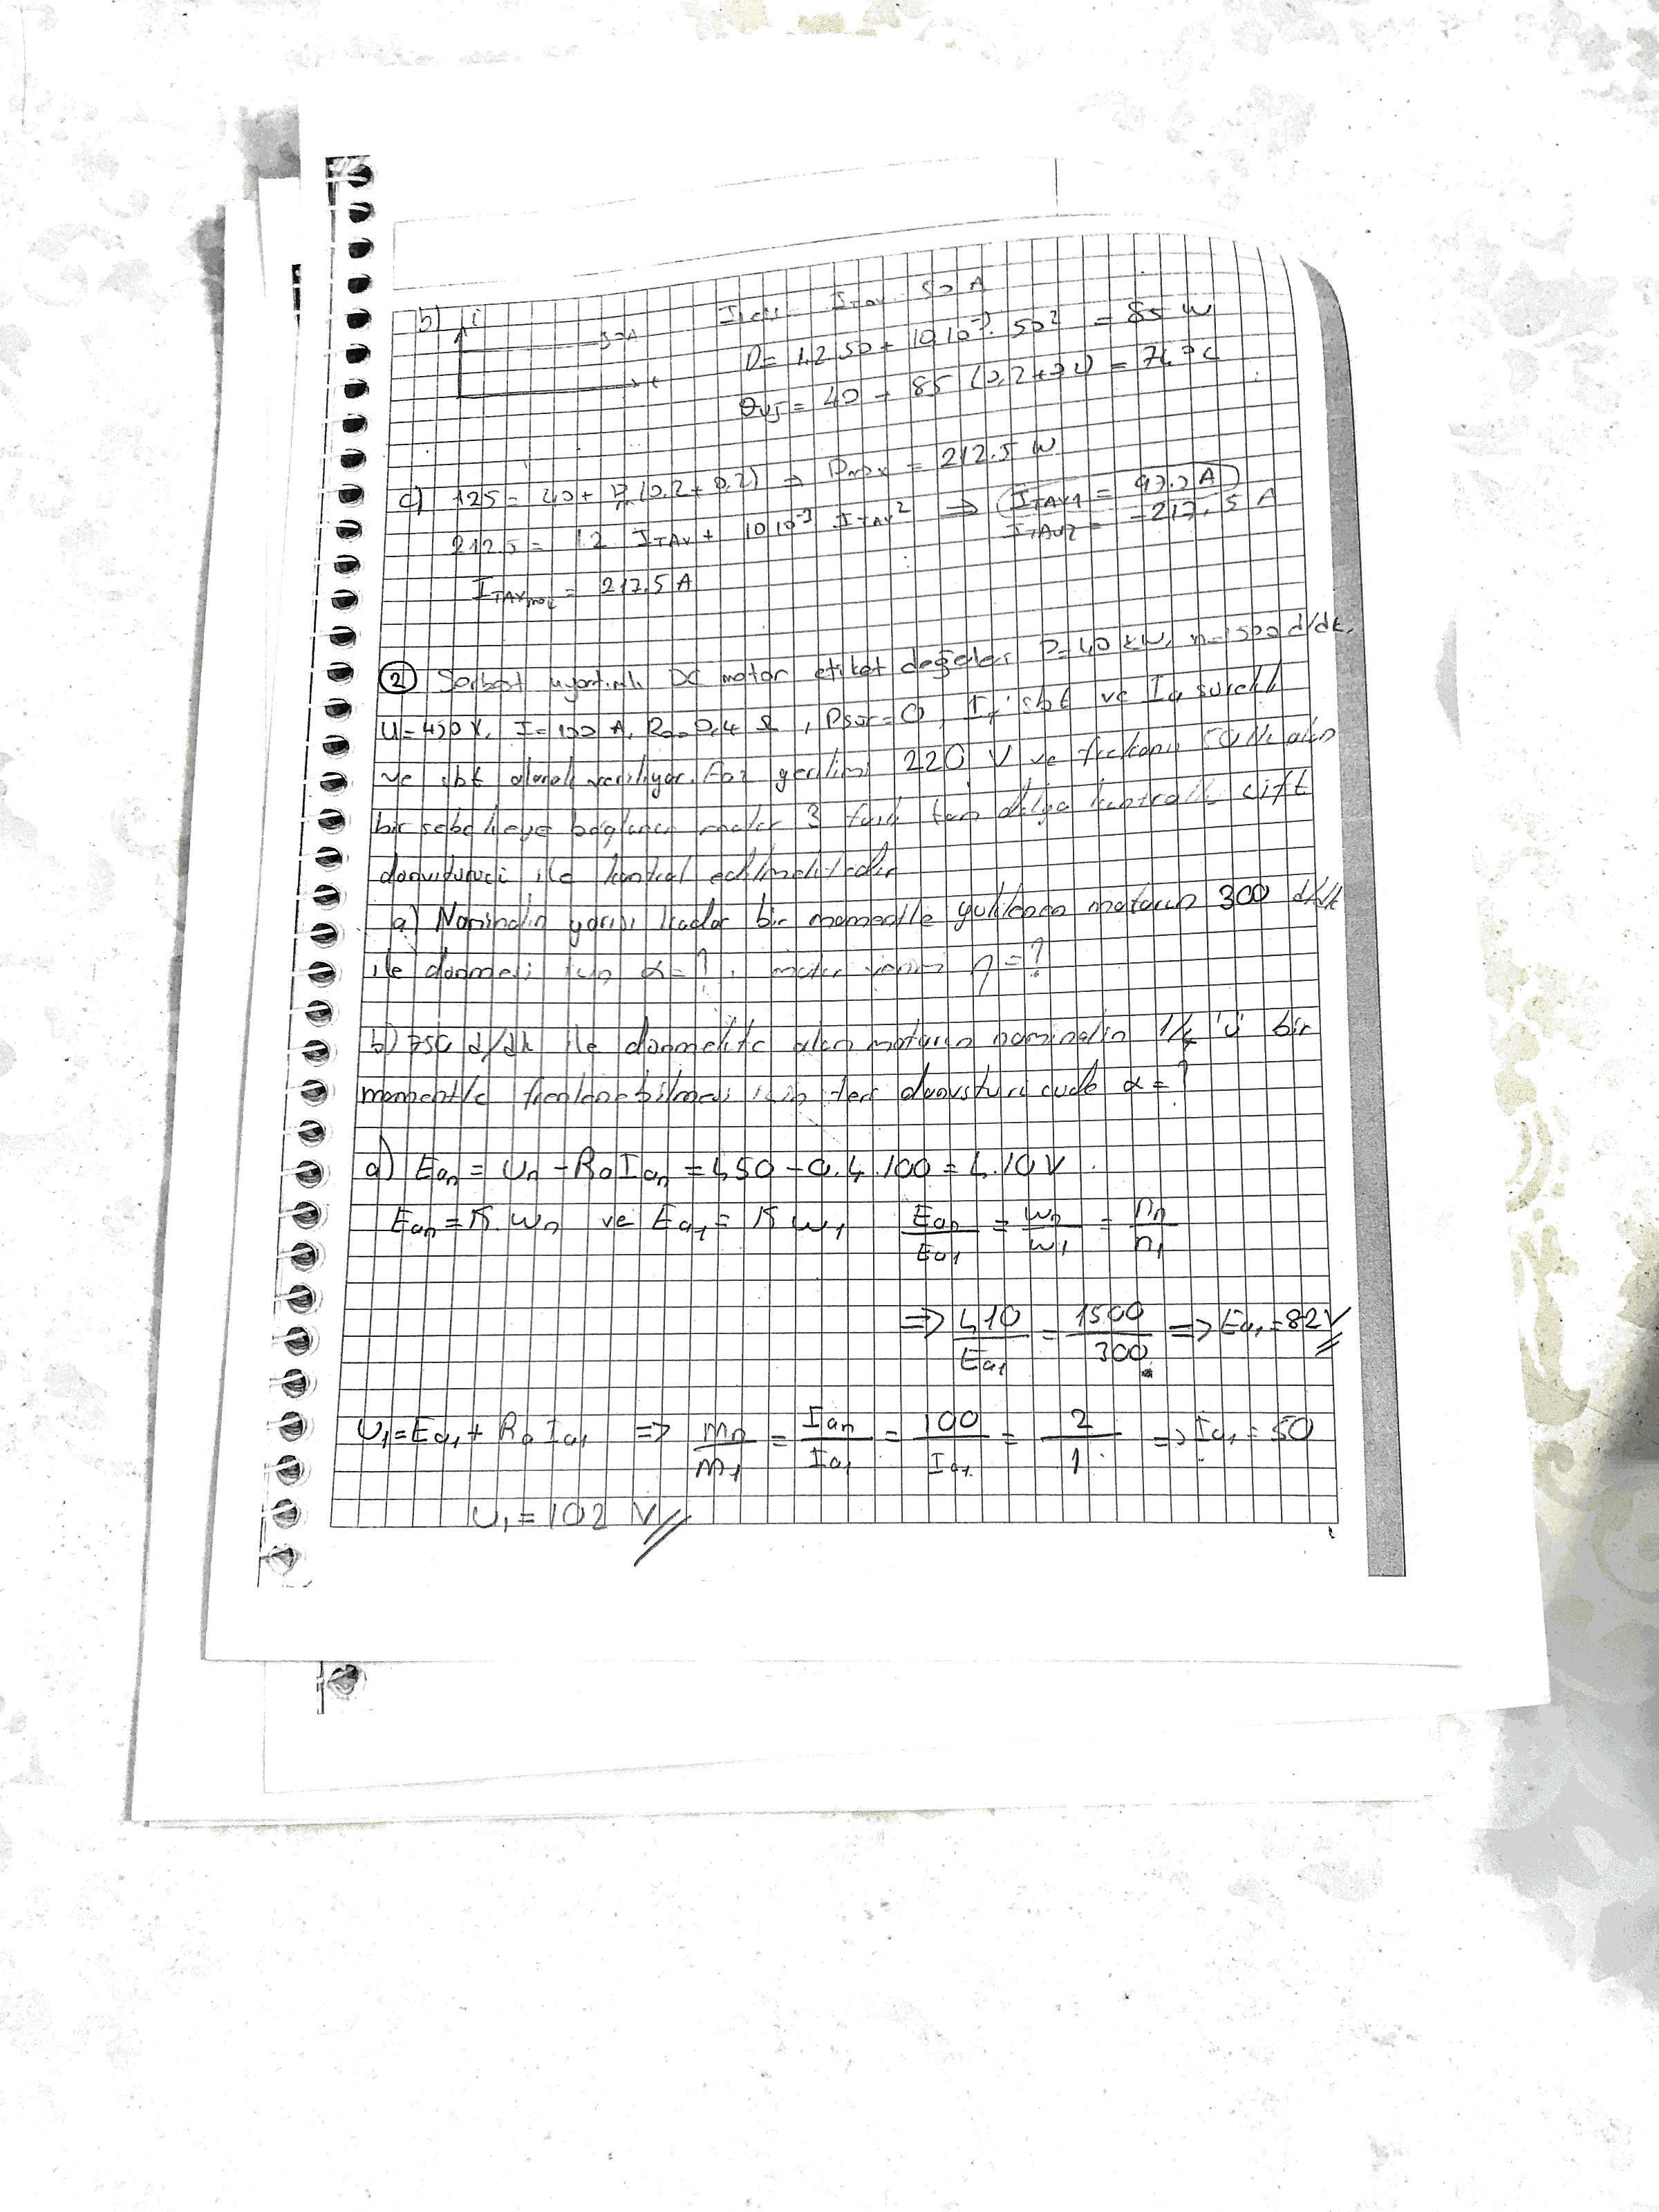 b) i
50A
t
ITAV 50 A
P = 1.2 50 + 10 10⁻³. 50² = 85 W
θvj = 40 + 85 (0,2+0,2) = 74 °C
c) 125 = 40 + P (0.2 + 0.2) → Pmax = 212.5 W
212.5 = 1.2 ITAV + 10 10⁻³ ITAV² ⇒ ITAV1 = A
ITAV2 = -217,5 A
ITAVmax = 217,5 A
② Serbest uyartımlı DC motor etiket değerleri P=40 kW, n=1500 d/dk,
U=450 V, I=100 A, Ra=0,4 Ω, Psür=0, If sbt ve Ia sürekli
ve sbt olarak veriliyor. Faz gerilimi 220 V ve frekansı olan
bir şebekeye bağlanan motor 3 fazlı tam dalga kontrollü çift
dönüştürücü ile kontrol edilmektedir
a) Nominalin yarısı kadar bir momentle yüklenen motorun 300 d/dk
ile dönmesi için α=?, motor verimi η=?
b) 750 d/dk ile dönmekte olan motorun nominalin 1/4 'ü bir
momentle frenlenebilmesi için ters dönüştürücüde α=?
a) Ean = Un - RaIan = 450 - 0.4.100 = 410 V
Ean = K. ωn ve Ea₁ = K ω₁ Ean/Ea₁ = ωn/ω₁ = nn/n₁
⇒ 410/Ea₁ = 1500/300 ⇒ Ea₁ = 82V
U₁ = Ea₁ + Ra Ia₁ ⇒ mn/m₁ = Ian/Ia₁ = 100/Ia₁ = 2/1 ⇒ Ia₁ = 50
U₁ = 102 V